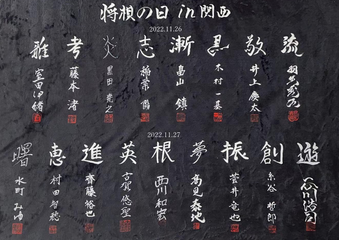 将棋の日 in 関西
2022.11.26
雅 考 炎 志 漸 敬
室田伊緒 藤本渚 黒田尭之 稲葉陽 畠山鎮 木村一基 井上慶太 羽生善治
2022.11.27
恵 進 英 根 夢 振 創 遊
水町みゆ 村田智穂 齊藤裕也 古賀悠聖 西川和宏 高見泰地 菅井竜也 糸谷哲郎